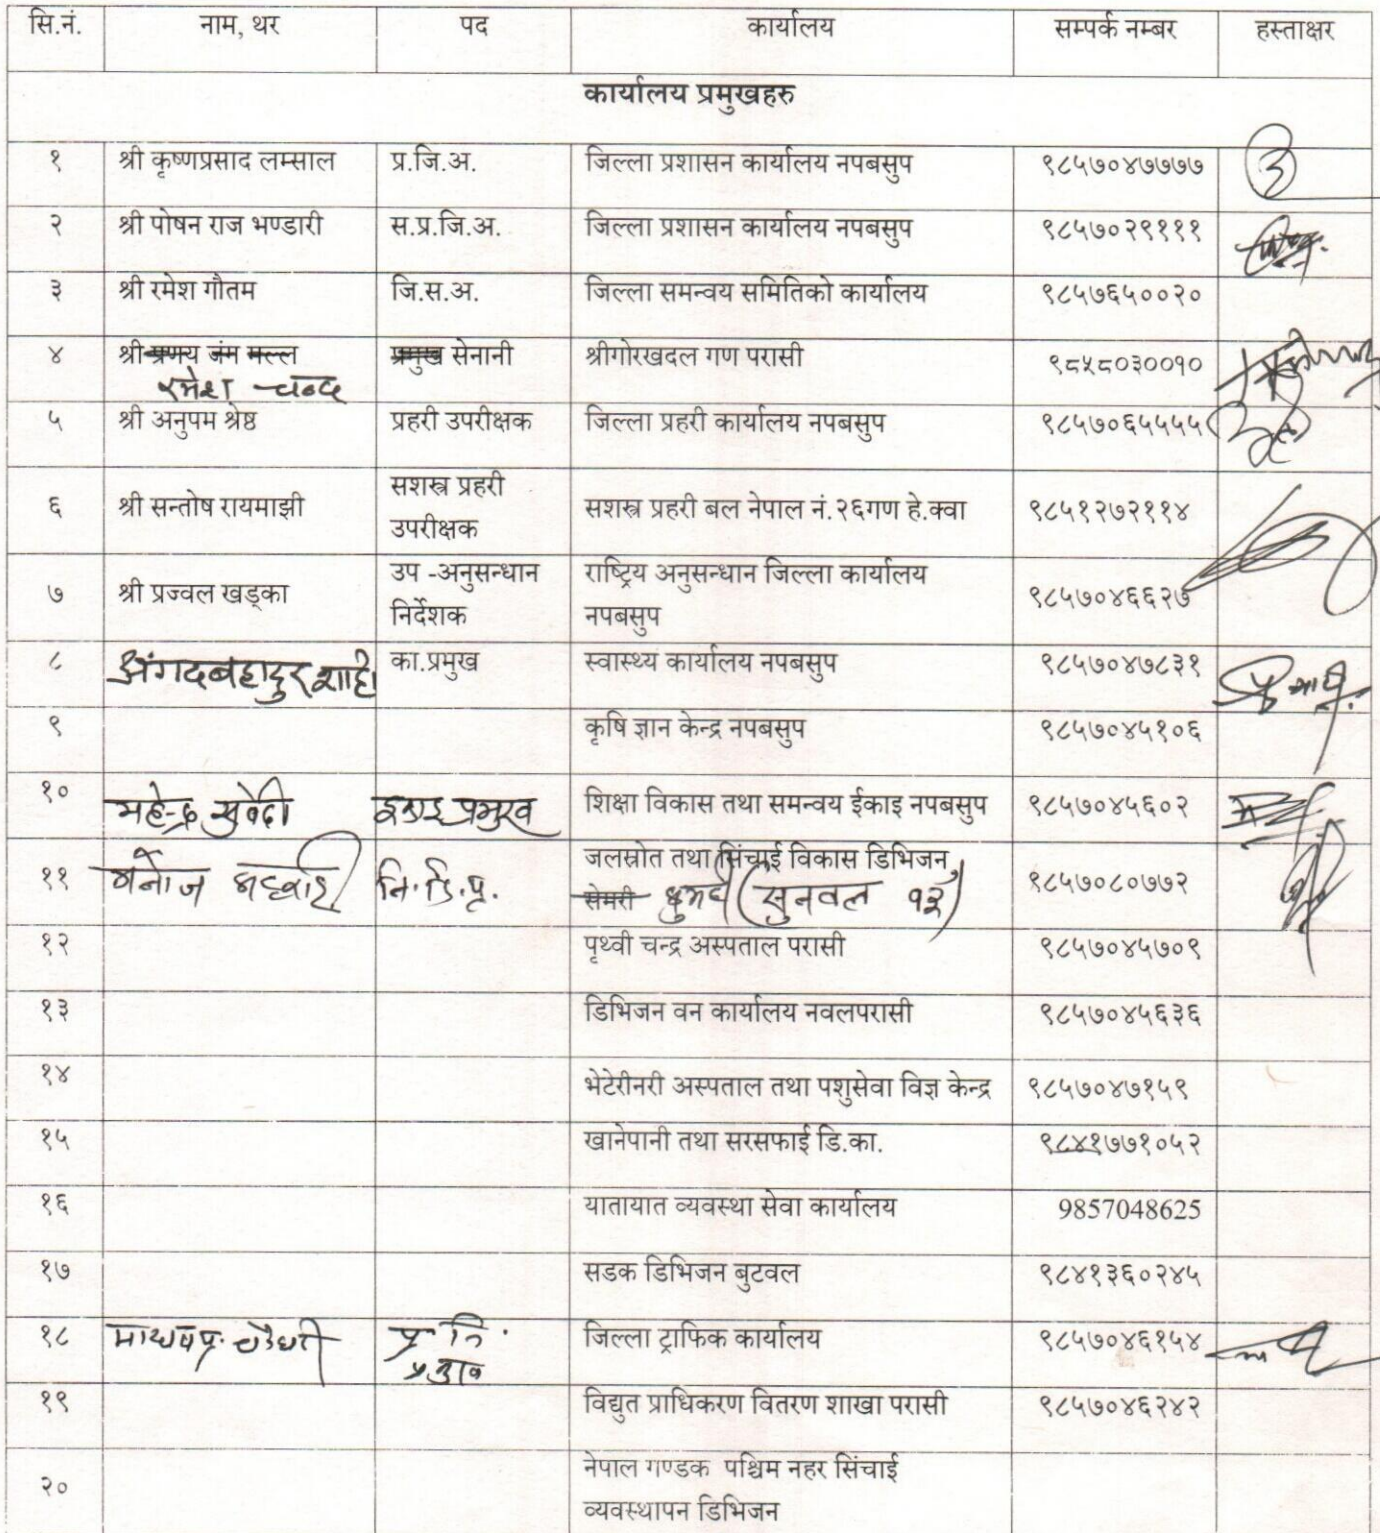 सि.नं. नाम, थर पद कार्यालय सम्पर्क नम्बर हस्ताक्षर
कार्यालय प्रमुखहरु
१ श्री कृष्णप्रसाद लम्साल प्र.जि.अ. जिल्ला प्रशासन कार्यालय नपबसुप ९८५७०४७७७७
२ श्री पोषन राज भण्डारी स.प्र.जि.अ. जिल्ला प्रशासन कार्यालय नपबसुप ९८५७०२९१११
३ श्री रमेश गौतम जि.स.अ. जिल्ला समन्वय समितिको कार्यालय ९८५७६५००२०
४ श्री प्रणय जंग मल्ल प्रमुख सेनानी श्रीगोरखदल गण परासी ९८५८०३००१०
रमेश चन्द
५ श्री अनुपम श्रेष्ठ प्रहरी उपरीक्षक जिल्ला प्रहरी कार्यालय नपबसुप ९८५७०६५५५५
६ श्री सन्तोष रायमाझी सशस्त्र प्रहरी
उपरीक्षक सशस्त्र प्रहरी बल नेपाल नं.२६गण हे.क्वा ९८५१२७२११४
७ श्री प्रज्वल खड्का उप -अनुसन्धान
निर्देशक राष्ट्रिय अनुसन्धान जिल्ला कार्यालय
नपबसुप ९८५७०४६६२७
८ अंगदबहादुर शाही का.प्रमुख स्वास्थ्य कार्यालय नपबसुप ९८५७०४७८३१
९ कृषि ज्ञान केन्द्र नपबसुप ९८५७०४५१०६
१० महेन्द्र सुवेदी इकाइ प्रमुख शिक्षा विकास तथा समन्वय ईकाइ नपबसुप ९८५७०४५६०२
११ मनोज नि.डि.प्र. जलस्रोत तथा सिंचाई विकास डिभिजन,
सेमरी (सुनवल १३) ९८५७०८०७७२
१२ पृथ्वी चन्द्र अस्पताल परासी ९८५७०४५७०९
१३ डिभिजन वन कार्यालय नवलपरासी ९८५७०४५६३६
१४ भेटेरीनरी अस्पताल तथा पशुसेवा विज्ञ केन्द्र ९८५७०४७१५९
१५ खानेपानी तथा सरसफाई डि.का. ९८४१७७१०५२
१६ यातायात व्यवस्था सेवा कार्यालय 9857048625
१७ सडक डिभिजन बुटवल ९८४१३६०२४५
१८ माधव प्र. चौधरी प्र नि. जिल्ला ट्राफिक कार्यालय ९८५७०४६१५४
१९ विद्युत प्राधिकरण वितरण शाखा परासी ९८५७०४६२४२
२० नेपाल गण्डक पश्चिम नहर सिंचाई
व्यवस्थापन डिभिजन